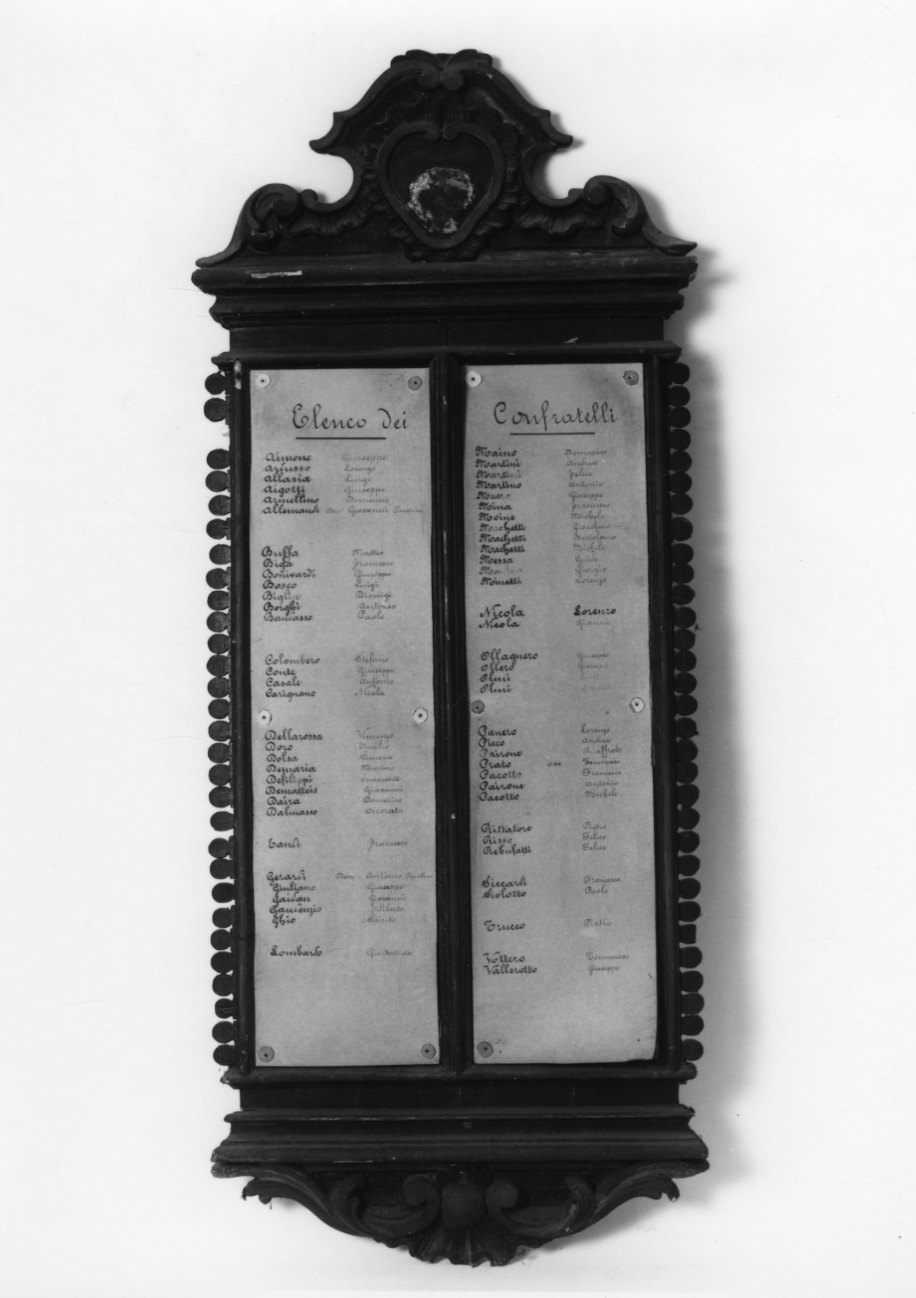 Elenco dei
Aimone Giuseppe
Ariusso Lorenzo
Allasia Luigi
Aigotti Giuseppe
Armellino Domenico
Allemandi Giovanni
Buffa Matteo
Biga Francesco
Bonivardi Giuseppe
Bosco Luigi
Dionigi
Borghi Antonio
Bamasso Paolo
Colombero Stefano
Conte Giuseppe
Casale Antonio
Carignano Nicola
Dellarossa Vincenzo
Doro Emilio
Dolza Simone
Demaria Martino
Defilippi Innocente
Dematteis Giovanni
Daira Domenico
Dalmasso Onorato
Fanti Francesco
Gerardi Don Antonio
Giuliano Giuseppe
Gaidan Giovanni
Gauienzio Filiberto
Ghio Spirito
Lombardo Gio Battista
Confratelli
Maino Domenico
Martini Andrea
Martini Felice
Martino Antonio
Giuseppe
Mina Francesco
Moine Michele
Machetti Gioachino
Machetti Bartolomeo
Machetti Michele
Messa Guido
Giorgio
Minetti Lorenzo
Nicola Lorenzo
Nicola Gianni
Ollagnero Giuseppe
Ollero
Olmi
Olmi
Panero Lorenzo
Picco Andrea
Peirone
Prato Tommaso
Pacotto Francesco
Pairone Antonio
Pacotto Michele
Rittatore Pietro
Risso Felice
Rebuffatti Felice
Siccardi Francesco
Siolotto Paolo
Trucco Pietro
Vottero Tommaso
Vallerotto Giuseppe